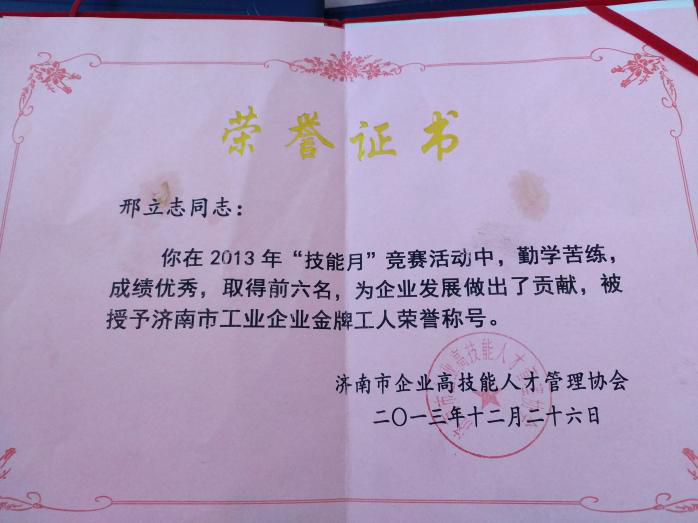 荣誉证书
邢立志同志：
你在2013年“技能月”竞赛活动中，勤学苦练，
成绩优秀，取得前六名，为企业发展做出了贡献，被
授予济南市工业企业金牌工人荣誉称号。
济南市企业高技能人才管理协会
二〇一三年十二月二十六日
济南市企业高技能人才管理协会